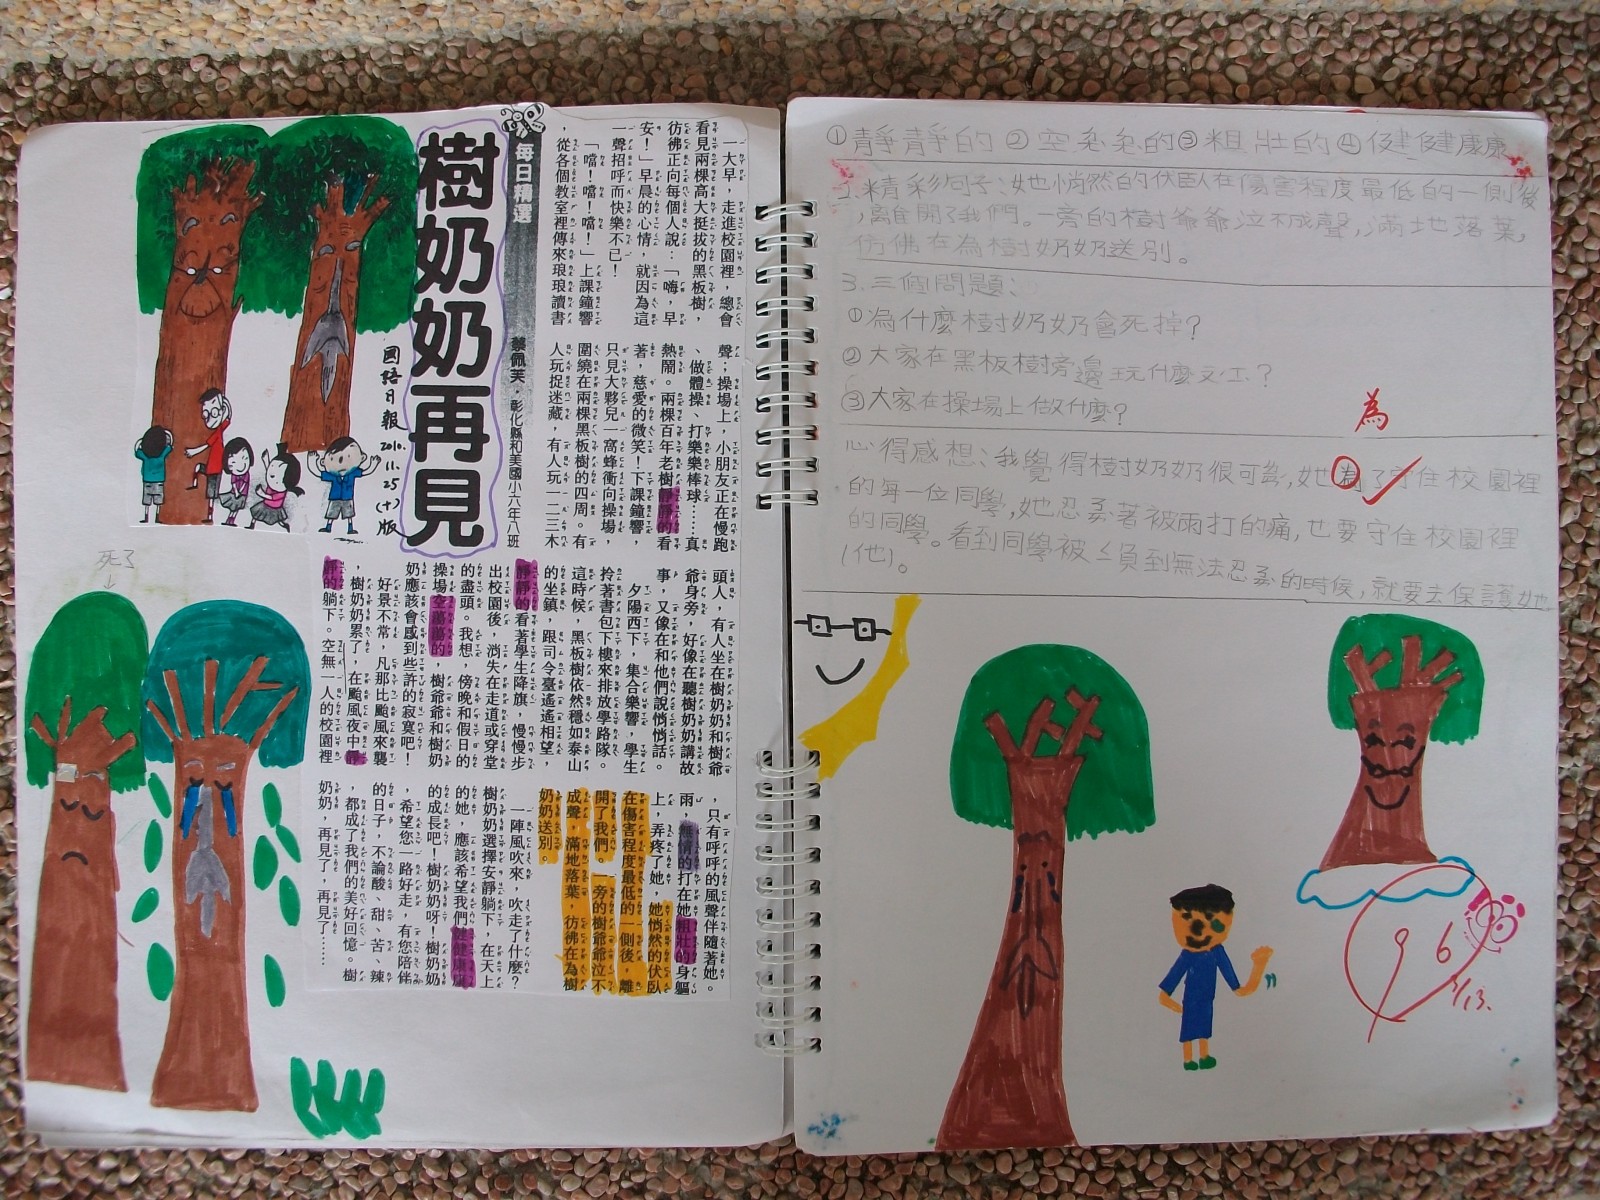 樹奶奶再見
每日精選
蔡佩芙．彰化縣和美國小六年八班
國語日報
2010.
11.25
(十)版
一大早，走進校園裡，總會
看見兩棵高大挺拔的黑板樹，
彷彿正向每個人說：「嗨，早
安！」早晨的心情，就因為這
一聲招呼而快樂不已！
「噹！噹！噹！」上課鐘響
，從各個教室裡傳來琅琅讀書
聲；操場上，小朋友正在慢跑
、做體操、打樂樂棒球……真
熱鬧。兩棵百年老樹靜靜的看
著，慈愛的微笑！下課鐘響，
只見大夥兒一窩蜂衝向操場，
圍繞在兩棵黑板樹的四周。有
人玩捉迷藏，有人玩一二三木
頭人，有人坐在樹奶奶和樹爺
爺身旁，好像在聽樹奶奶講故
事，又像在和他們說悄悄話。
夕陽西下，集合樂響，學生
拎著書包下樓來排放學路隊。
這時候，黑板樹依然穩如泰山
的坐鎮，跟司令臺遙遙相望，
靜靜的看著學生降旗，慢慢步
出校園後，消失在走道或穿堂
的盡頭。我想，傍晚和假日的
操場空蕩蕩的，樹爺爺和樹奶
奶應該會感到些許的寂寞吧！
好景不常，凡那比颱風來襲
，樹奶奶累了，在颱風夜中靜
靜的躺下。空無一人的校園裡
，只有呼呼的風聲伴隨著她。
雨，無情的打在她粗壯的身軀
上，弄疼了她，她悄然的伏臥
在傷害程度最低的一側後，離
開了我們。一旁的樹爺爺泣不
成聲，滿地落葉，彷彿在為樹
奶奶送別。
一陣風吹來，吹走了什麼？
樹奶奶選擇安靜躺下，在天上
的她，應該希望我們健健康康
的成長吧！樹奶奶呀！樹奶奶
，希望您一路好走，有您陪伴
的日子，不論酸、甜、苦、辣
，都成了我們的美好回憶。樹
奶奶，再見了，再見了……
死了
↓
①靜靜的②空蕩蕩的③粗壯的④健健康康
2.精彩句子、她悄然的伏臥在傷害程度最低的一側後
，離開了我們。一旁的樹爺爺泣不成聲，滿地落葉，
彷彿在為樹奶奶送別。
3.三個問題：
①為什麼樹奶奶會死掉？
②大家在黑板樹旁邊玩什麼ㄡㄒㄧ？
③大家在操場上做什麼？
為
心得感想：我覺得樹奶奶很可憐，她為了守住校園裡
的每一位同學，她忍受著被雨打的痛，也要守住校園裡
的同學。看到同學被ㄑ負到無法忍受的時候，就要去保護她
(他)。
96